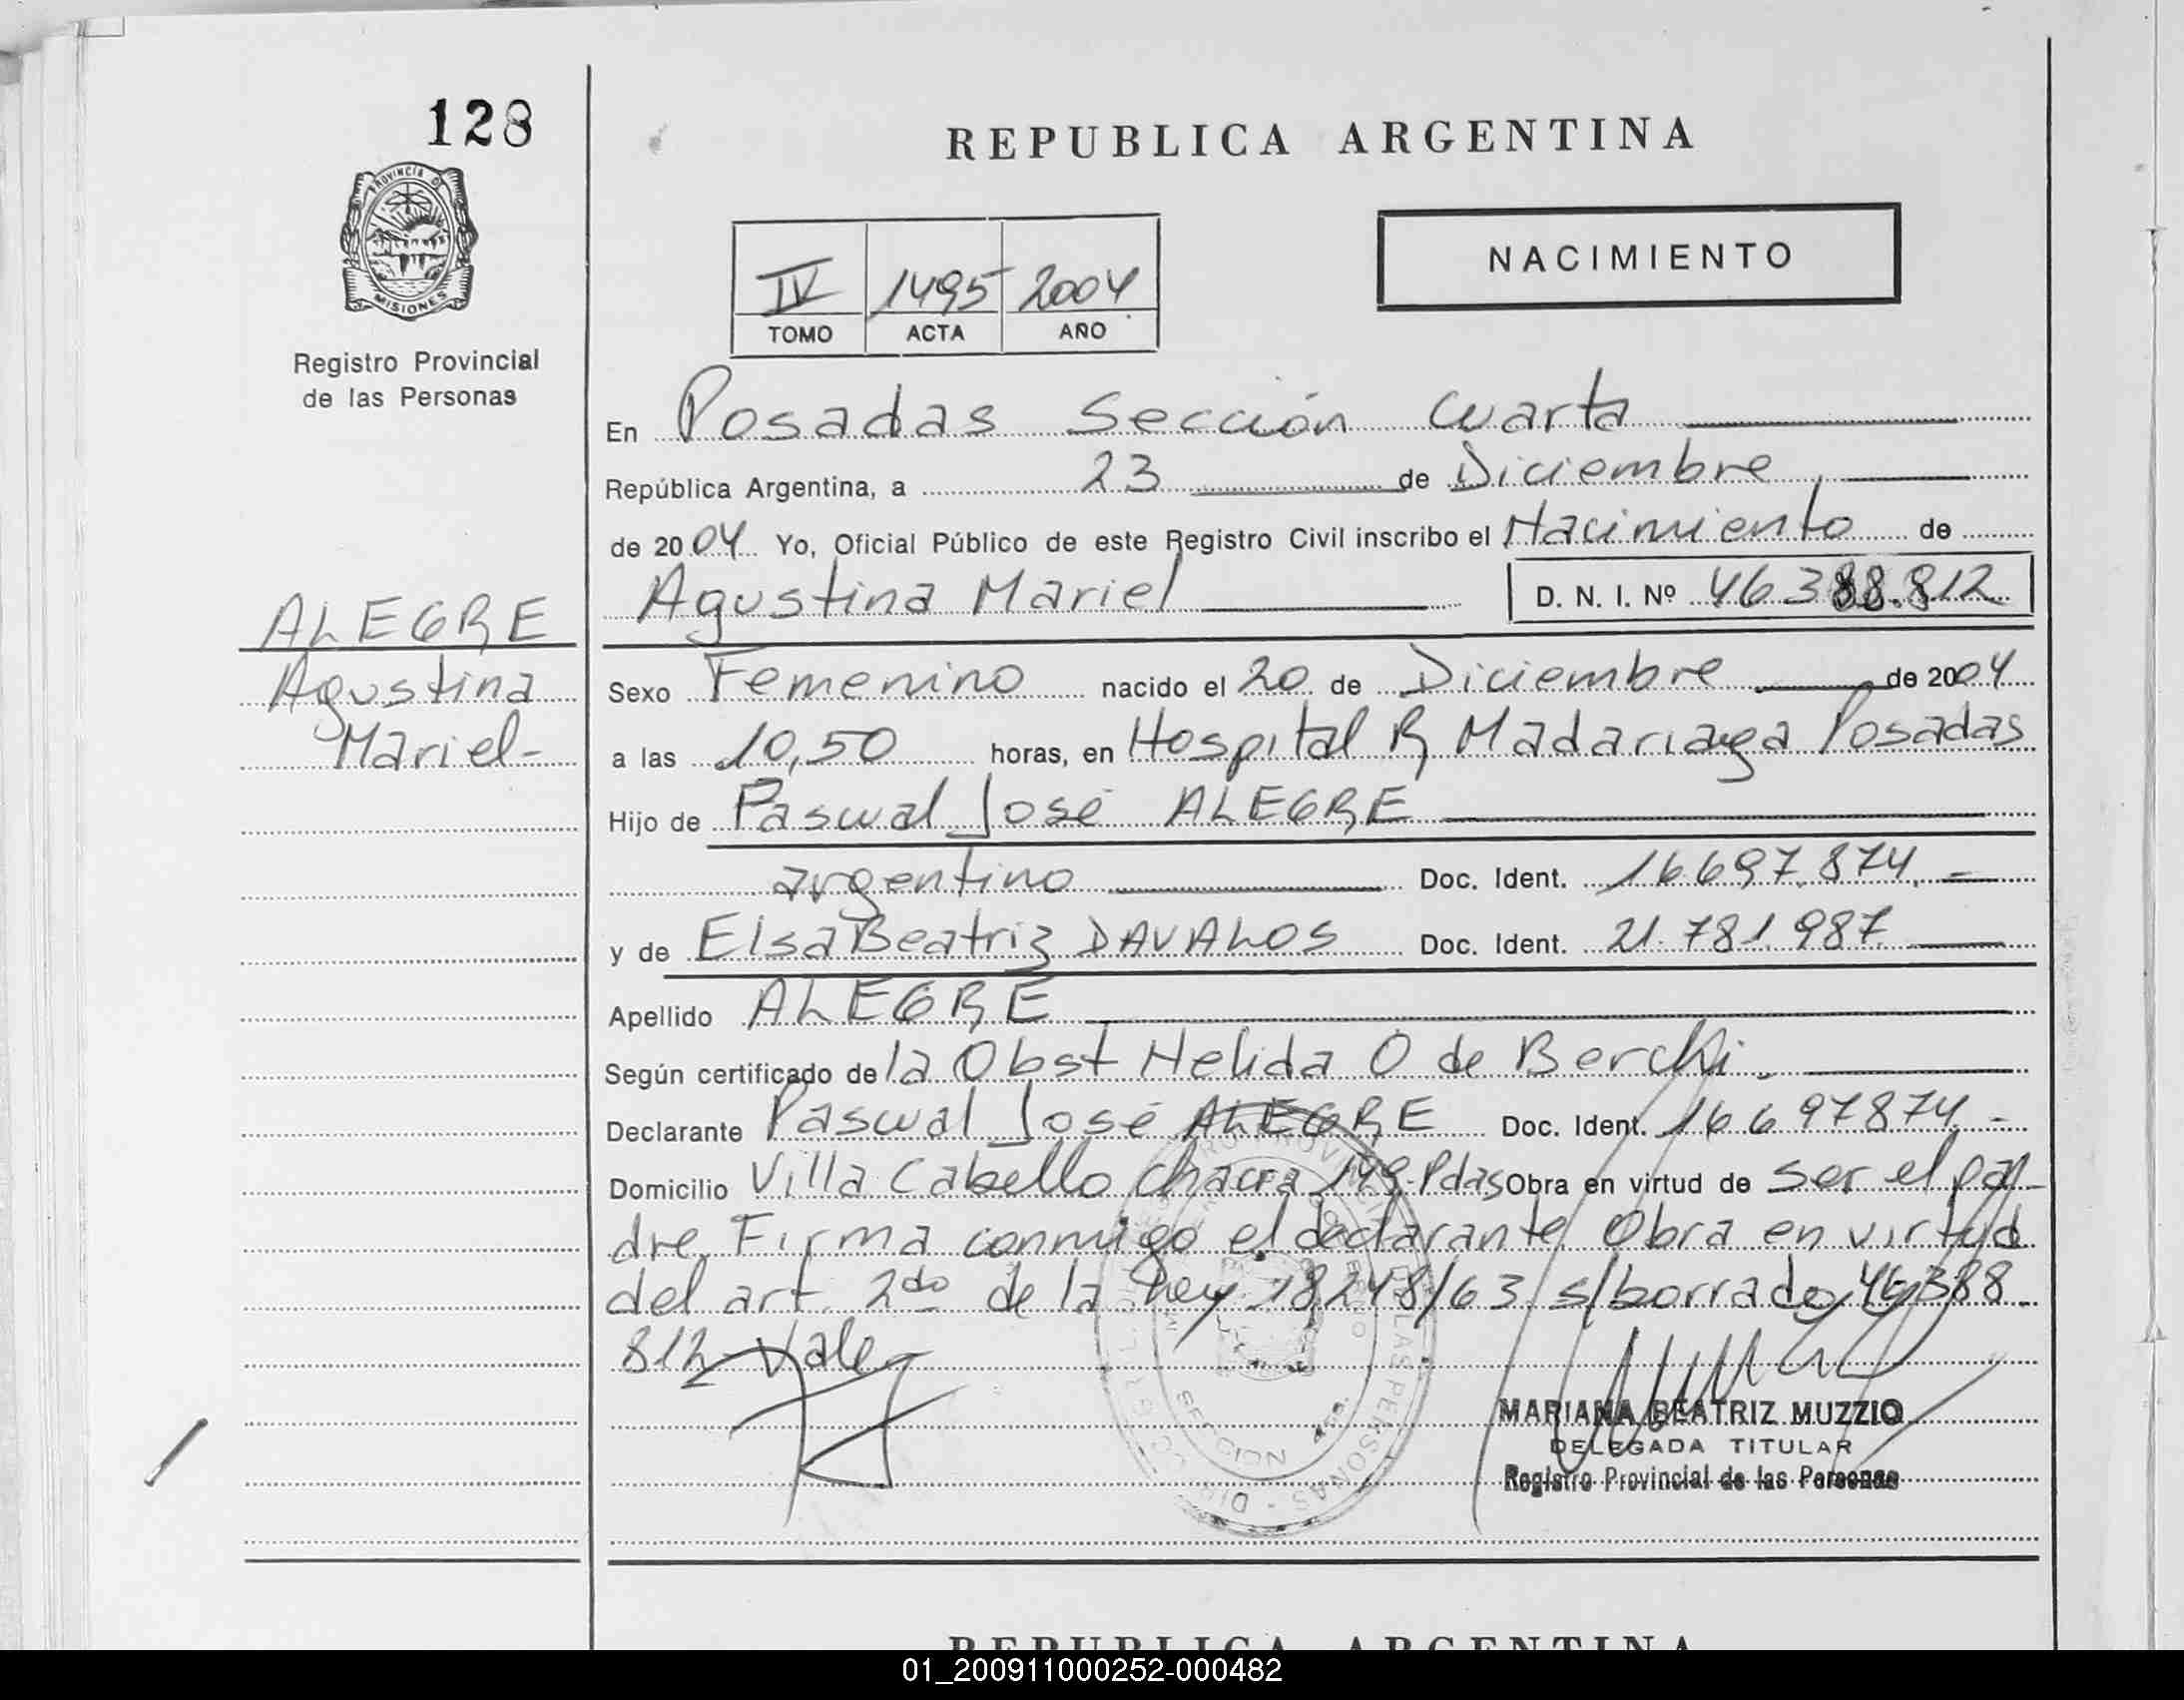 128
REPUBLICA ARGENTINA
PROVINCIA D
MISIONES
NACIMIENTO
IV 1495 2004
TOMO ACTA AÑO
Registro Provincial
de las Personas
En Posadas Sección Cuarta
República Argentina, a 23 de Diciembre
de 2004 Yo, Oficial Público de este Registro Civil inscribo el Nacimiento de
Agustina Mariel D. N. I. Nº 46388.812
ALEGRE
Agustina
Mariel-
Sexo Femenino nacido el 20 de Diciembre de 2004
a las 10,50 horas, en Hospital R Madariaga Posadas
Hijo de Pascual José ALEGRE
argentino Doc. Ident. 16.697.874.-
y de Elsa Beatriz DAVALOS Doc. Ident. 21.781.987.
Apellido ALEGRE
Según certificado de la Obst Nelida O de Berchi.
Declarante Pascual José ALEGRE Doc. Ident. 16697874.-
Domicilio Villa Cabello chacra 149-Pdas Obra en virtud de ser el pa-
dre. Firma conmigo el declarante Obra en virtud
del art. 2do de la Ley 18.248/63 s/borrado 46388
812 Vale
SECCION 4ta.
MARIANA BEATRIZ MUZZIO
DELEGADA TITULAR
Registro Provincial de las Personas
REPUBLICA ARGENTINA
01_200911000252-000482